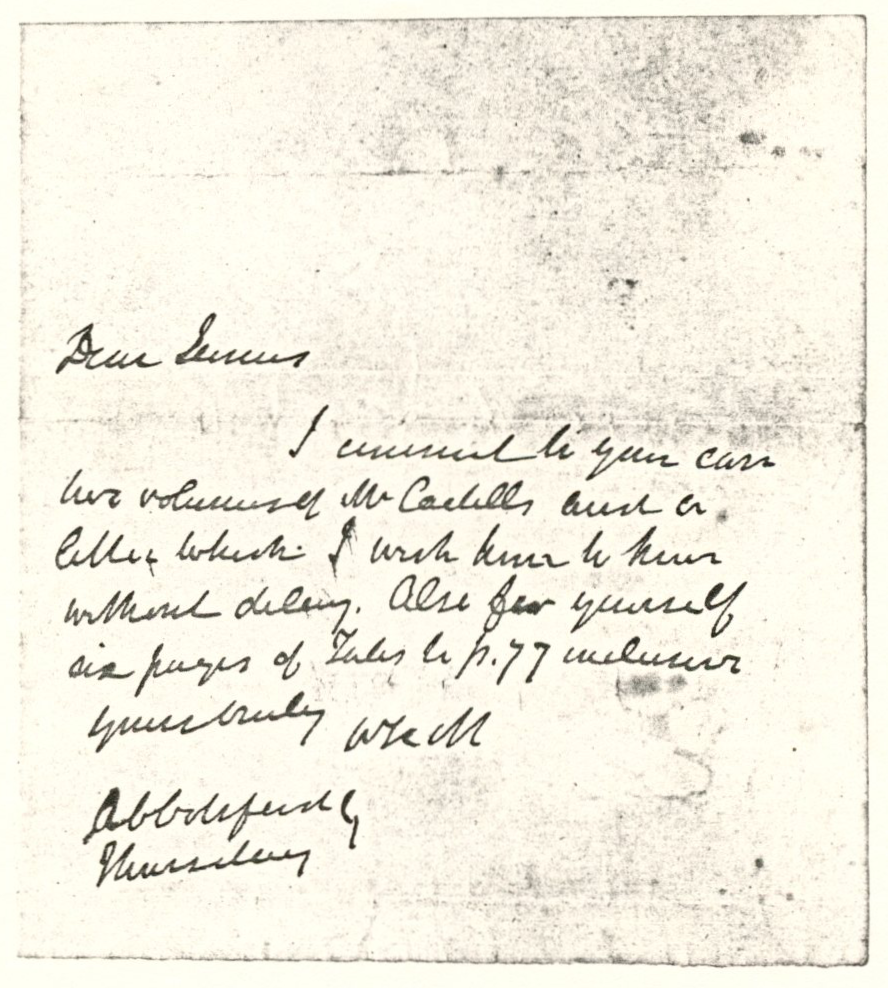 Dear James
I consist to your care
two volumes of Mr Cadells and a
letter which I wish him to have
without delay. Also for yourself
six pages of Tales to p. 77 inclusive
yours truly W Scott
Abbotsford
Thursday